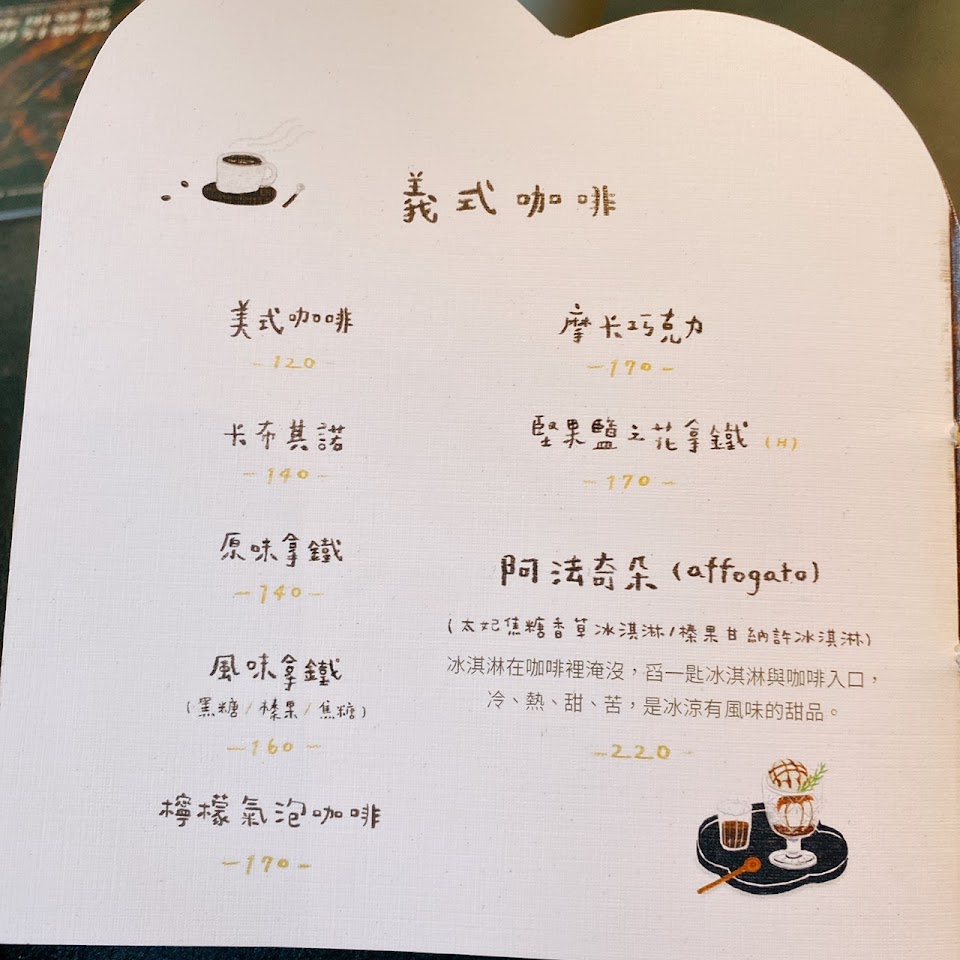 義式咖啡
美式咖啡
-120-
卡布其諾
-140-
原味拿鐵
-140-
風味拿鐵
(黑糖/榛果/焦糖)
-160-
檸檬氣泡咖啡
-170-
摩卡巧克力
-170-
堅果鹽之花拿鐵 (H)
-170-
阿法奇朵 (affogato)
(太妃焦糖香草冰淇淋/榛果甘納許冰淇淋)
冰淇淋在咖啡裡淹沒，舀一匙冰淇淋與咖啡入口，
冷、熱、甜、苦，是冰涼有風味的甜品。
-220-